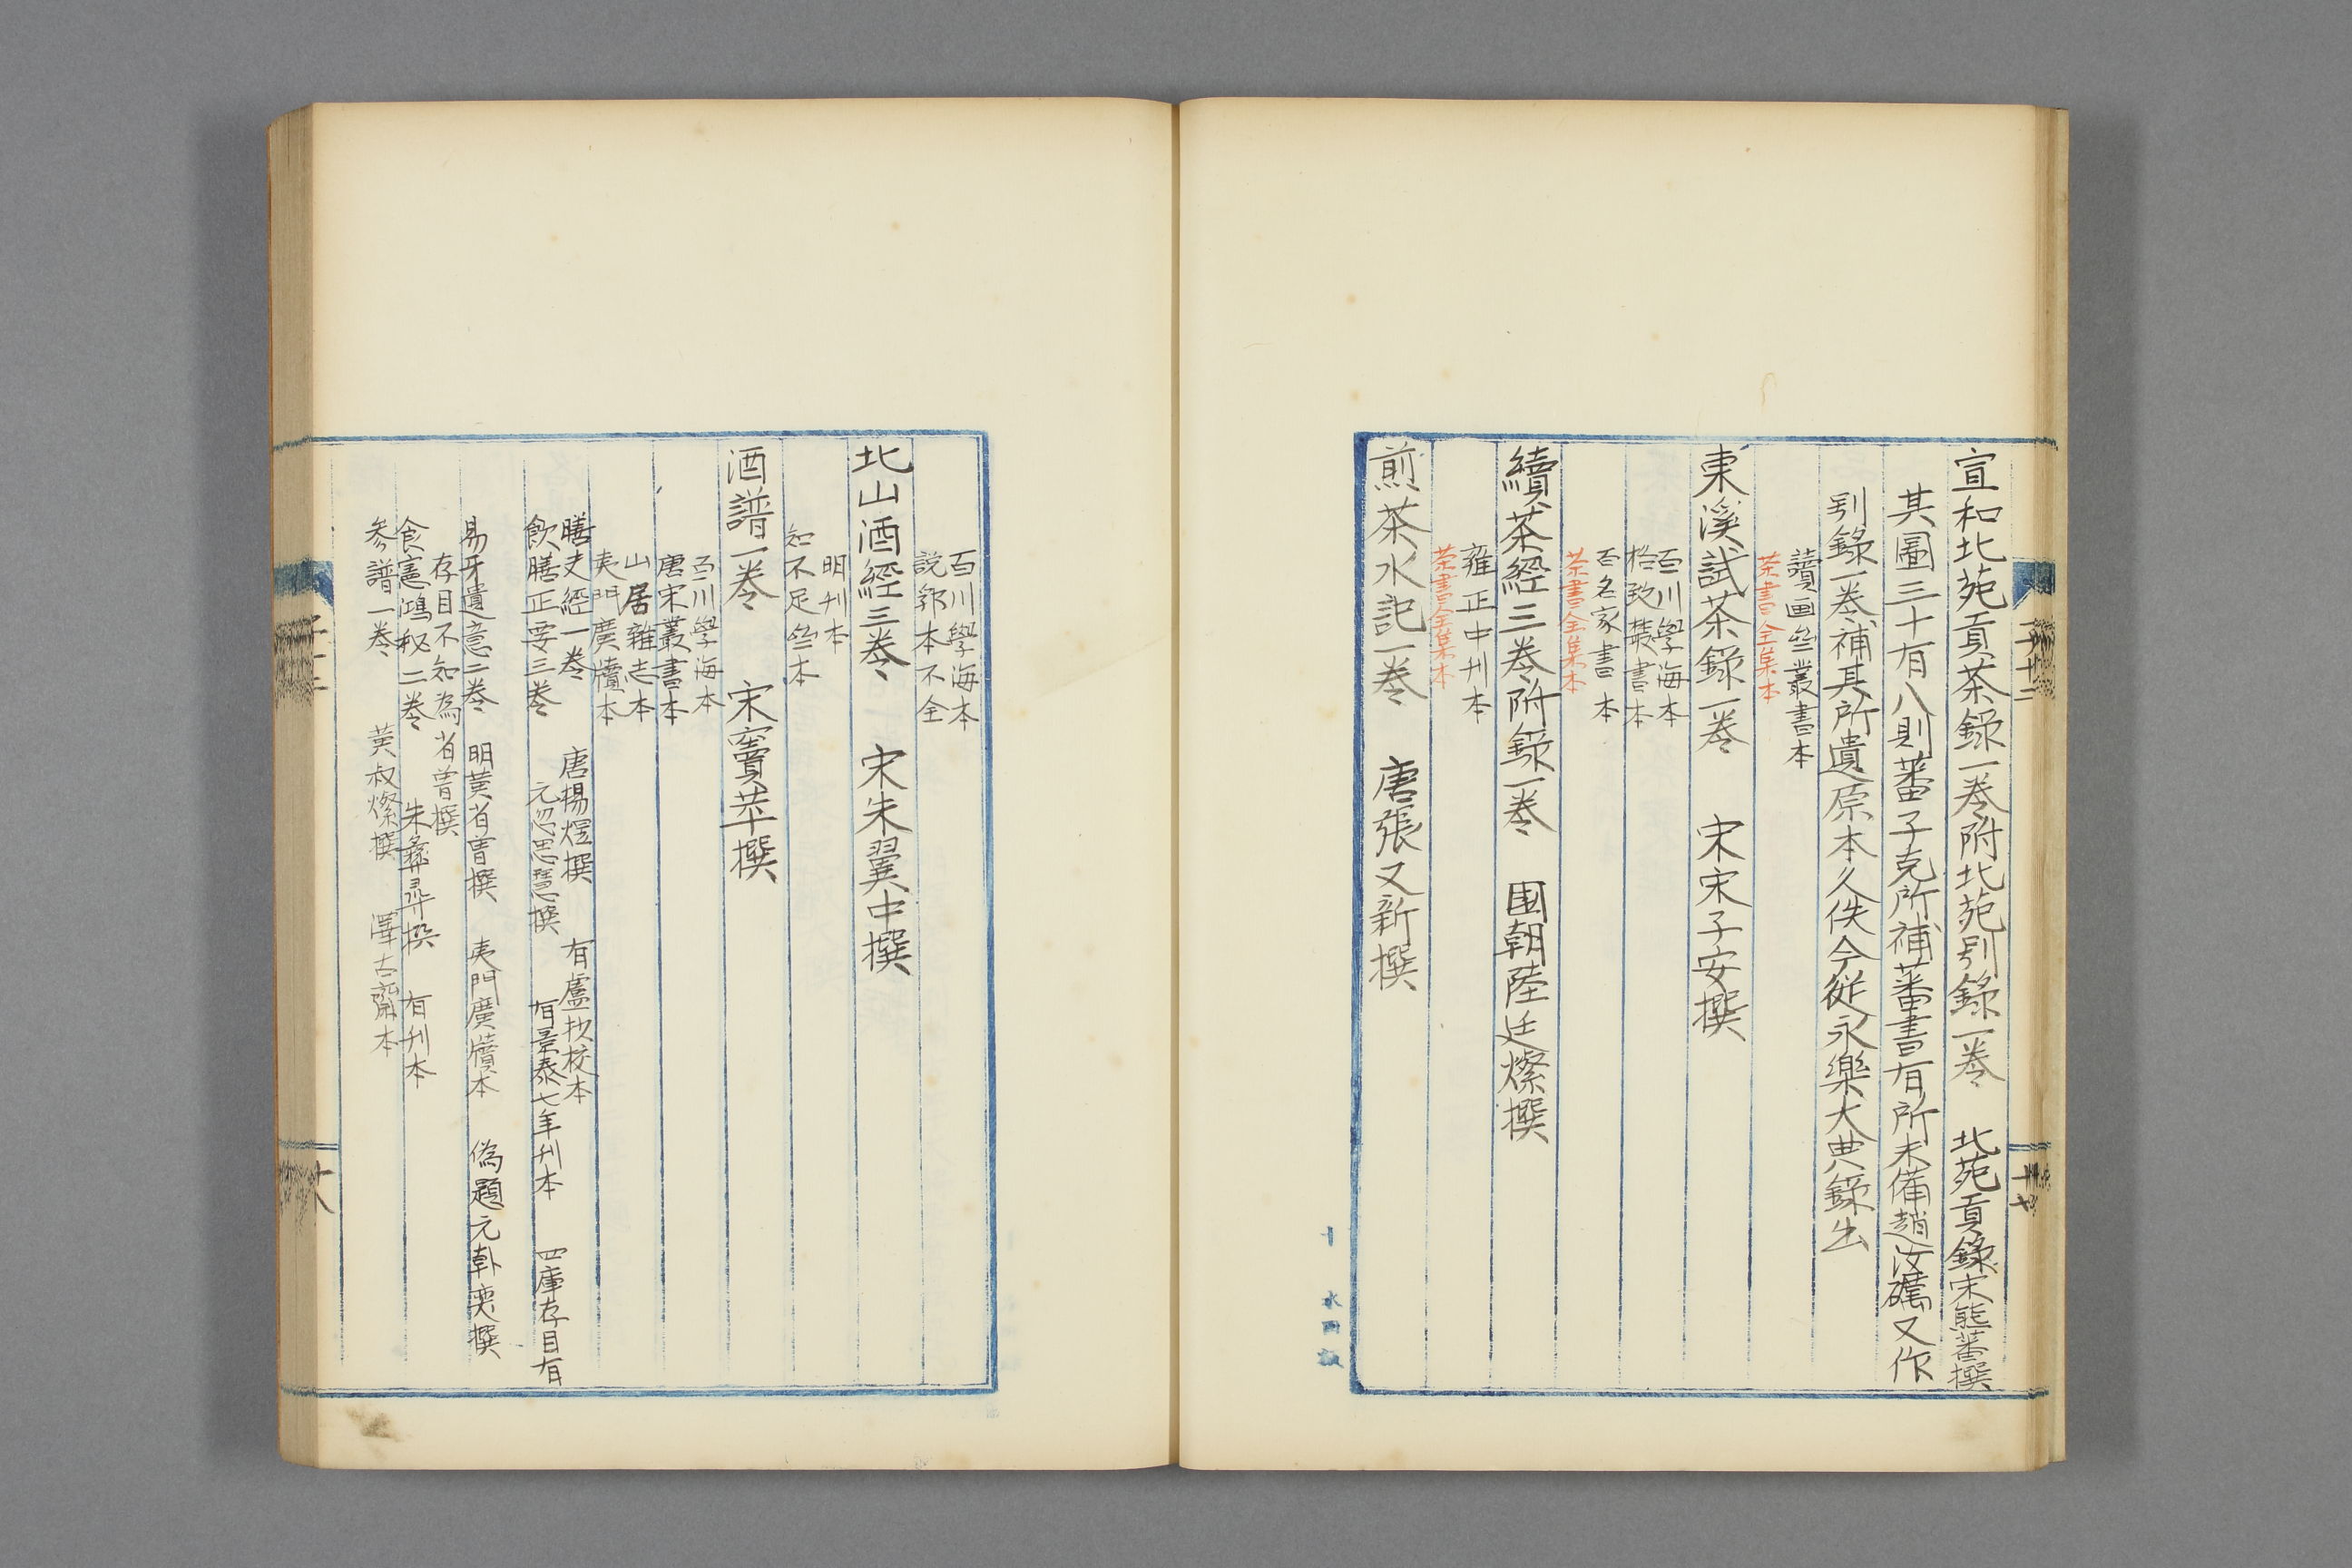 宣和北苑貢茶錄一卷附北苑別錄一卷　北苑貢錄宋熊蕃撰
其圖三十有八則蕃子克所補蕃書有所未備趙汝礪又作
別錄一卷補其所遺原本久佚今從永樂大典錄出
讀画斋叢書本
茶書全集本
東溪試茶錄一卷　宋宋子安撰
百川學海本
格致叢書本
百名家書本
茶書全集本
續茶經三卷附錄一卷　国朝陸廷燦撰
雍正中刊本
茶書全集本
煎茶水記一卷　唐張又新撰
百川學海本
說郛本不全
北山酒經三卷　宋朱翼中撰
明刊本
知不足斋本
酒譜一卷　宋竇苹撰
百川學海本
唐宋叢書本
山居雜志本
夷門廣牘本
膳夫經一卷　唐楊煜撰　有盧抄校本
飲膳正要三卷　元忽思慧撰　有景泰七年刊本　四庫存目有
易牙遺意二卷　明黄省曾撰　夷門廣牘本　偽題元韩奕撰
存目不知為省曾撰
食憲鴻秘二卷　朱彝尊撰　有刊本
参譜一卷　黄叔燦撰　澤古齋本
子十二
十七